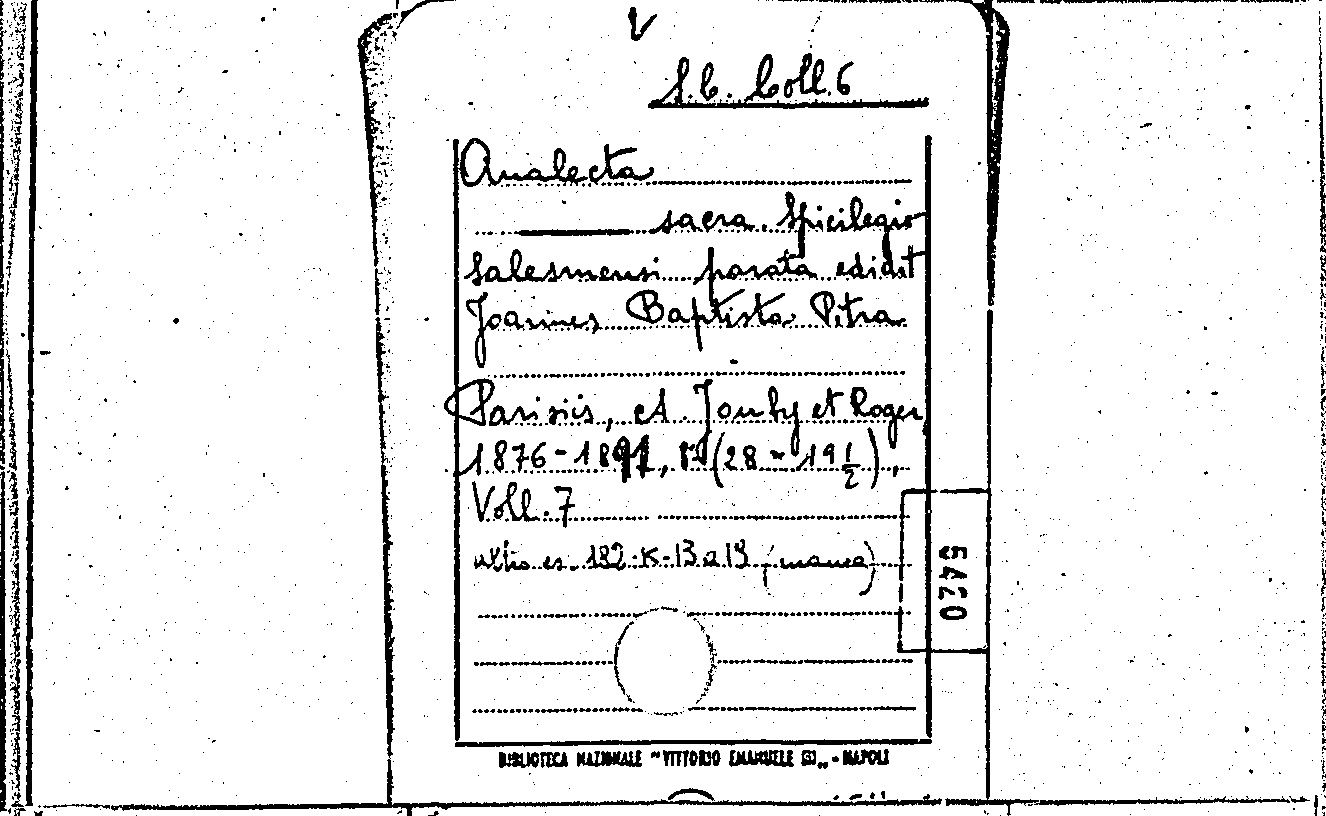 S.C. Coll. 6
Analecta
sacra. Spicilegio
Salesmensi parata edidit
Joannes Baptista Pitra
Parisiis, ed. Jouby et Roger
1876-1891, 8° (28 - 19 1/2),
Voll. 7
altro es. 182-K-13 a 19 (manca)
5420
BIBLIOTECA NAZIONALE "VITTORIO EMANUELE III" - NAPOLI